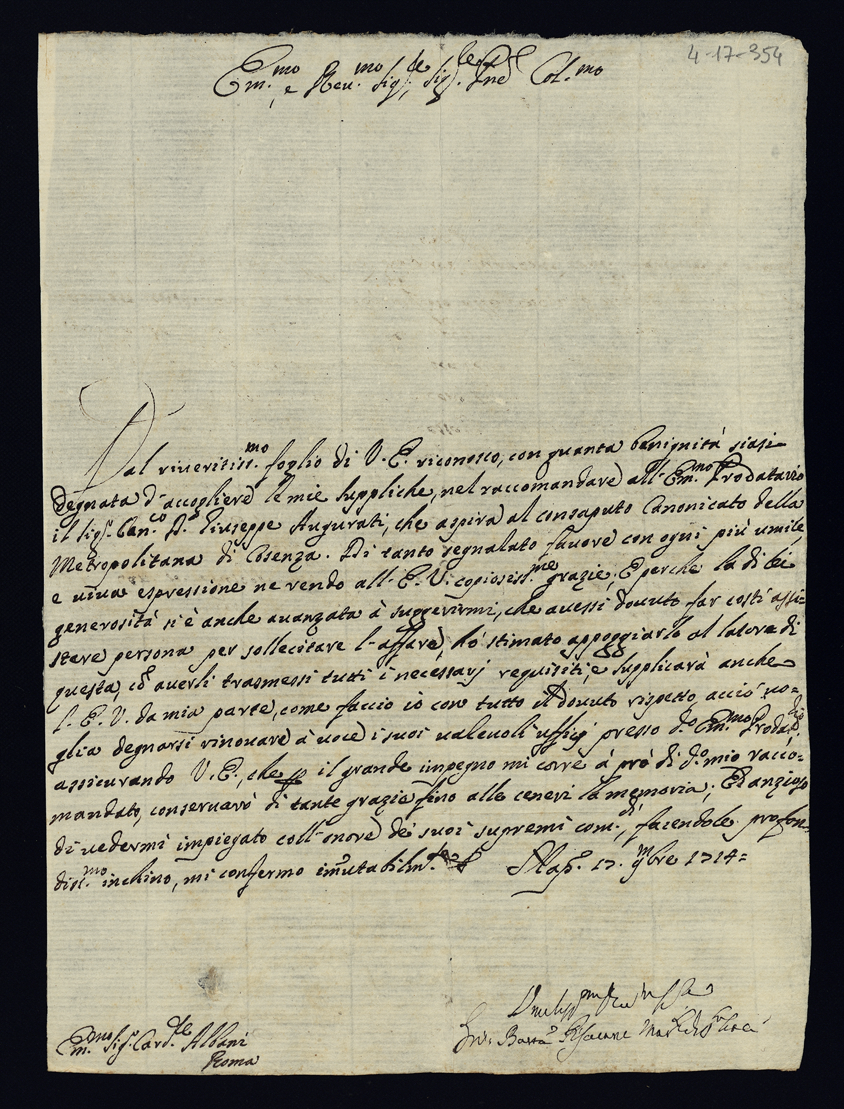 4-17-354
Em.mo e Reu.mo Sig.re Sig.re Pne Col.mo
Dal riueritiss.mo foglio di V. E. riconosco, con quanta benignità siasi
degnata d'accogliere le mie suppliche, nel raccomandare all'Em.mo Prodatario
il Sig.r Can.co D. Giuseppe Augurati, che aspira al consaputo Canonicato della
Metropolitana di Cosenza. Di tanto segnalato fauore con ogni più umile,
e uiua espressione ne rendo all'E. V. copiosiss.me grazie; E perche la di lei
generosità s'è anche auanzata à suggerirmi, che auessi douuto far costì assi=
stere persona per sollecitare l'affare, hò stimato appoggiarlo al latore di
questa, cõ auerli trasmessi tutti i necessarj requisiti, e supplicarà anche
l'E. V. da mia parte, come faccio io con tutto il douuto rispetto, acciò uo=
glia degnarsi rinouare à uoce i suoi ualeuoli uffizj presso d.o Em.mo Prodat.rio
assicurando V. E., che p il grande impegno mi corre à prò di d.o mio racco=
mandato, conseruarò di tante grazie fino alle ceneri la memoria; Et anzioso
di uedermi impiegato coll'onore de' suoi supremi com.di, facendole profon=
diss.mo inchino, mi confermo imutabilm.te Nap. 17. 9mbre 1714=
Em.mo Sig.r Card.le Albani
Roma